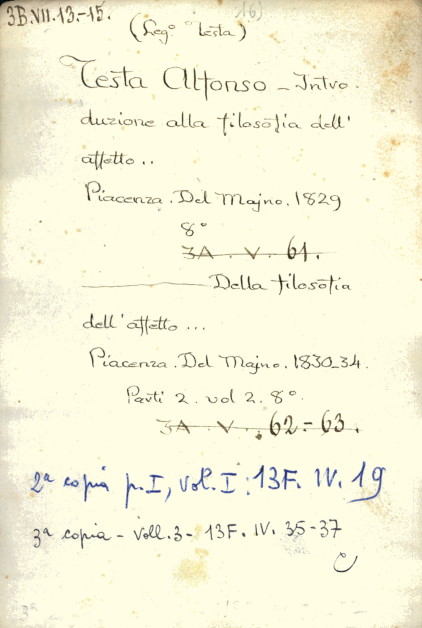 3B.VII.13.-15.
16)
(Leg.° Testa)
Testa Alfonso - Intro-
duzione alla filosofia dell'
affetto..
Piacenza. Del Majno. 1829
8°
3A. V. 61.
Della filosofia
dell'affetto...
Piacenza. Del Majno. 1830-34.
Parti 2. vol 2. 8°.
3A. V. 62-63.
2ª copia p. I, vol. I: 13F. IV. 19
3ª copia - voll. 3 - 13F. IV. 35-37